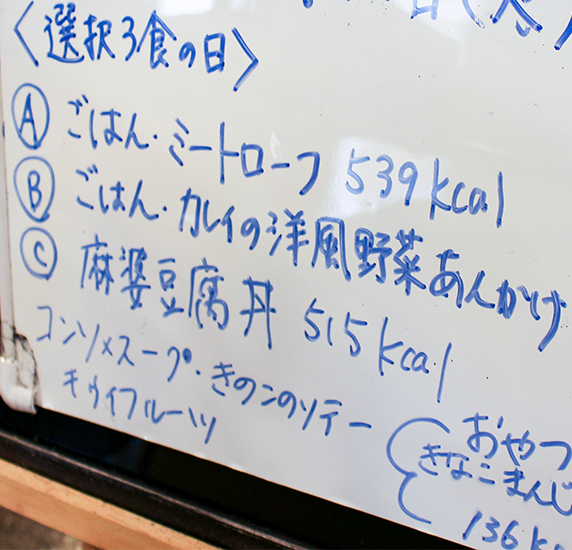 〈選択3食の日〉
Ⓐ ごはん・ミートローフ 539kcal
Ⓑ ごはん・カレイの洋風野菜あんかけ
Ⓒ 麻婆豆腐丼 515kcal
コンソメスープ・きのこのソテー
キウイフルーツ
おやつ
きなこまんじ
136k